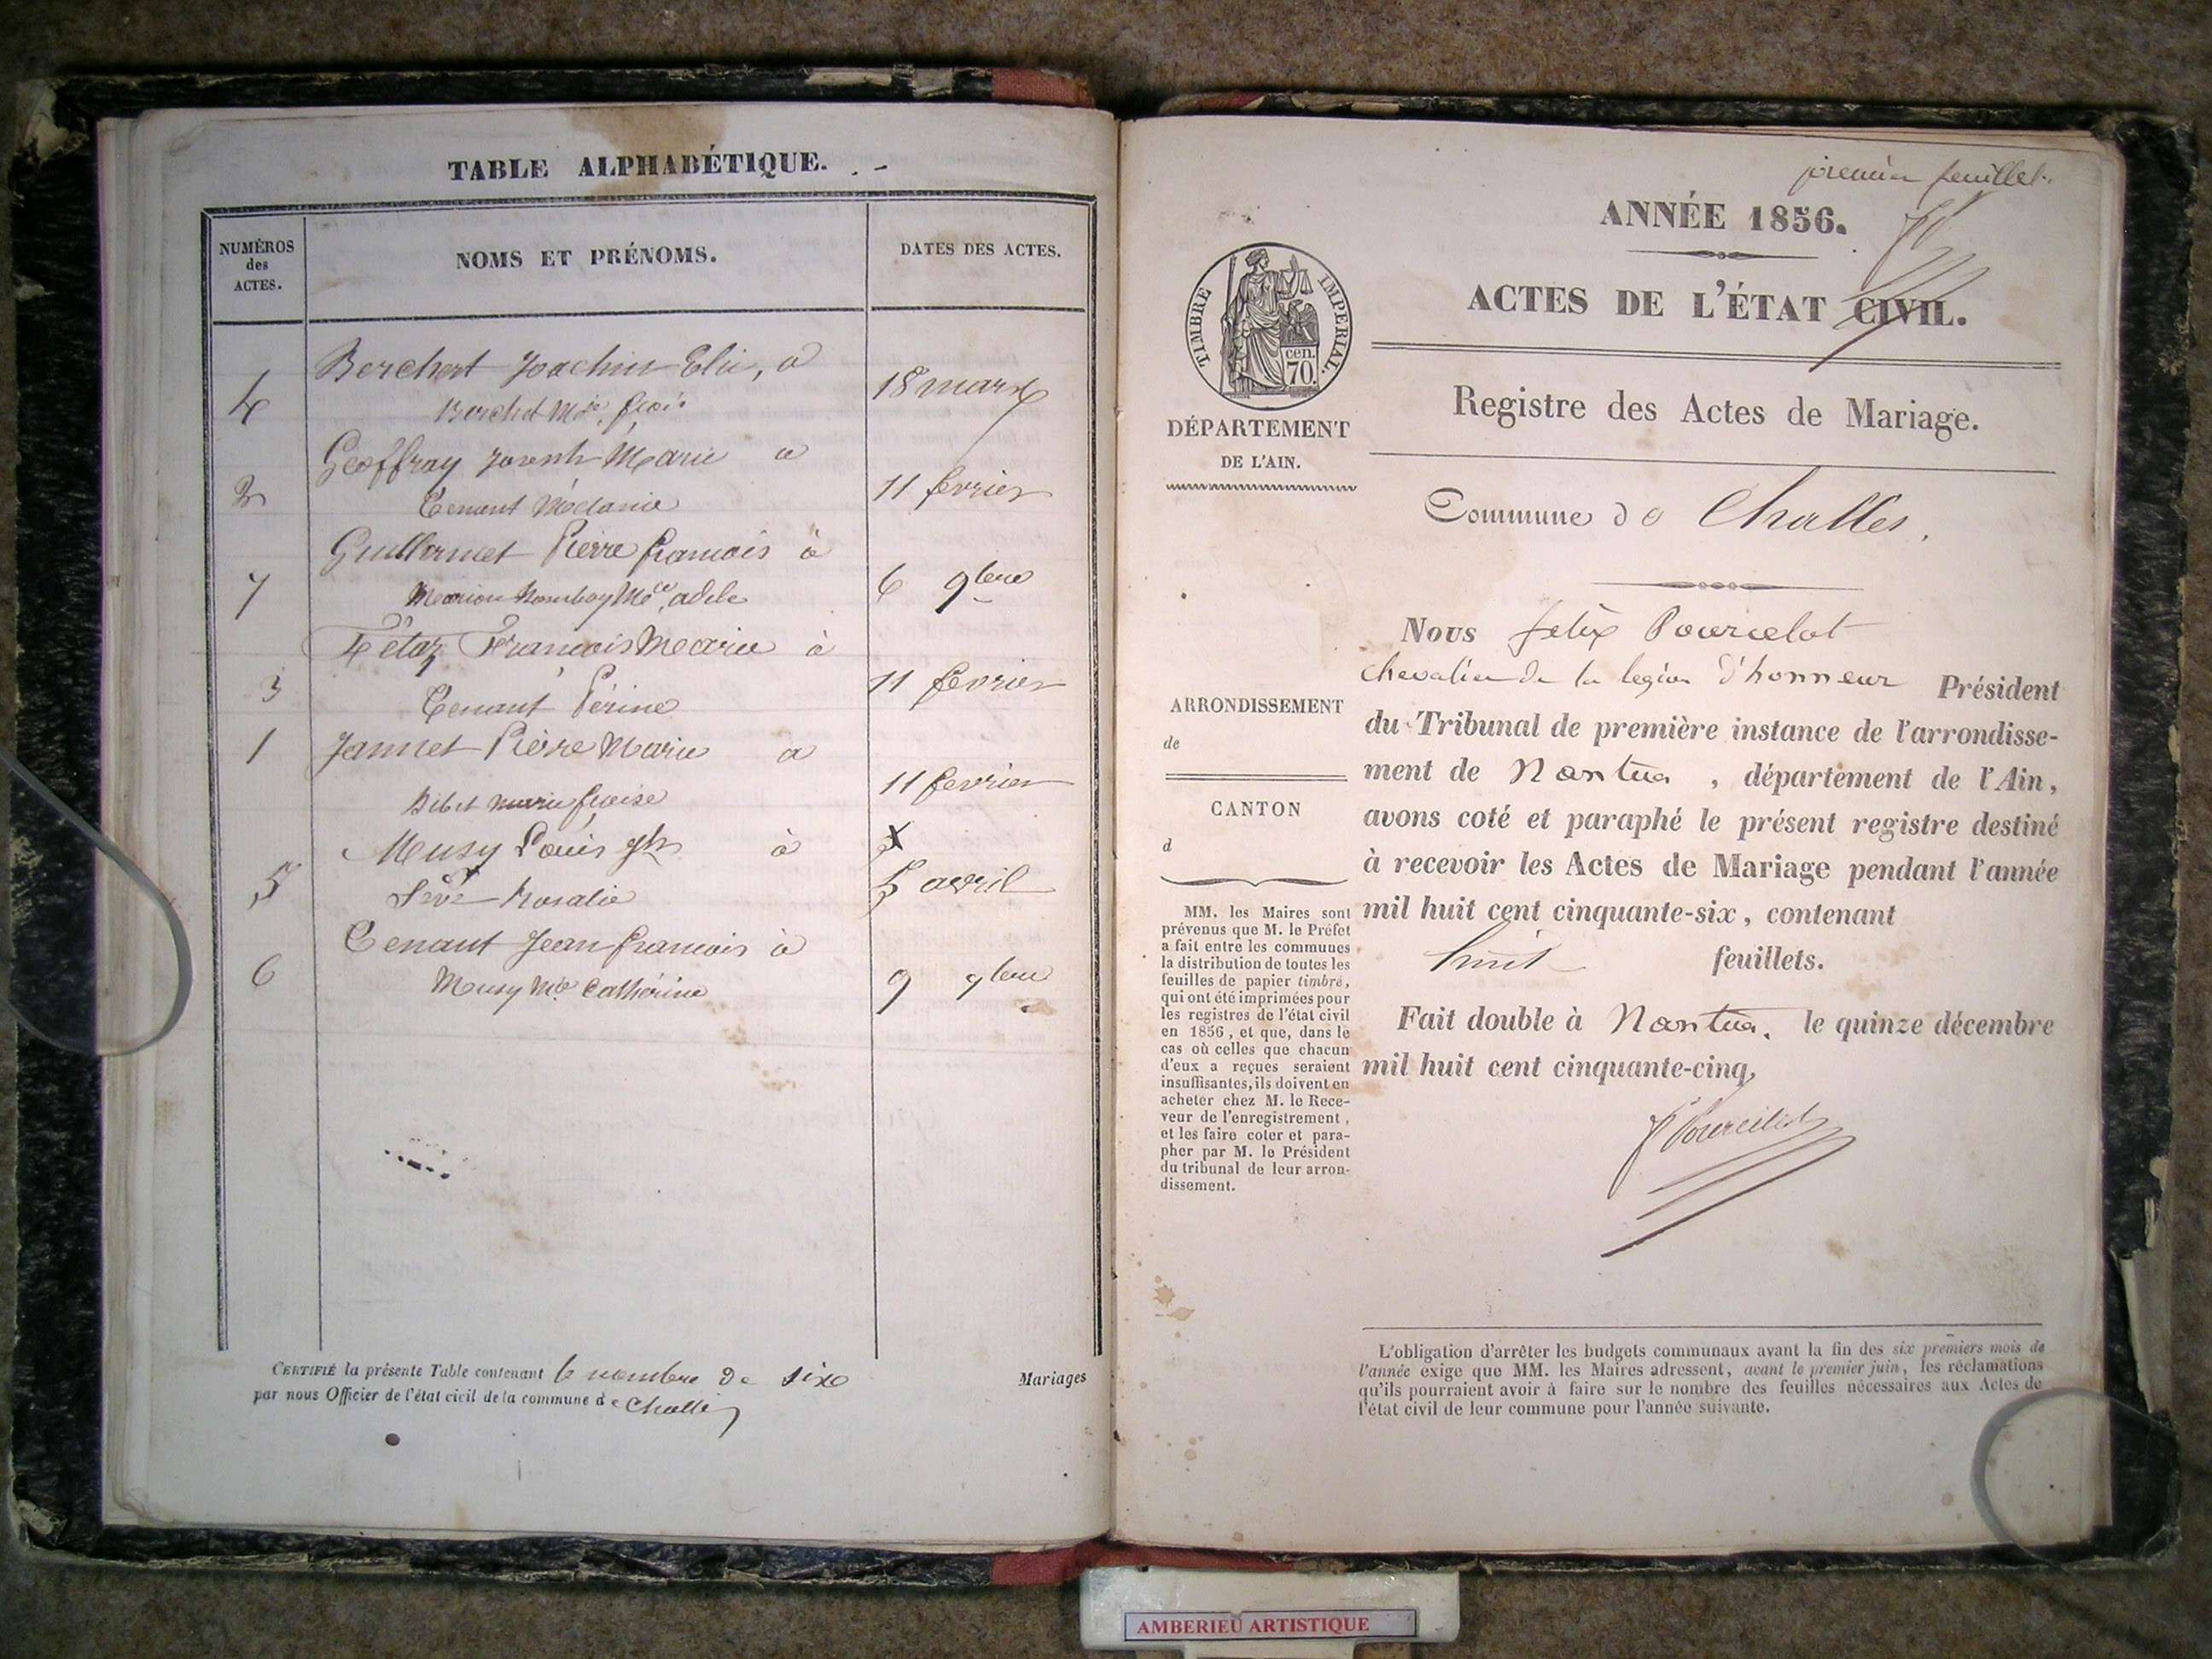 TABLE ALPHABÉTIQUE.
NUMÉROS des ACTES.
NOMS ET PRÉNOMS.
DATES DES ACTES.
Berchert Joachin Elie, a
4
Berchet Mie fçoise
18 mars
Geoffray Joseph Marie a
2
Tenant Mélanie
11 fevrier
Guillermet Pierre francois à
7
Marion Adele
6 9bre
Fétaz Francois Marie à
3
Tenant Périne
11 fevrier
1 Jannet Pierre Marie a
Bibet marie fcoise
11 fevrier
Musy Louis jh à
5
Sève Rosalie
5 avril
Tenant Jean francois à
6
Musy Mie Catherine
9 9bre
CERTIFIÉ la présente Table contenant le nombre de six Mariages
par nous Officier de l'état civil de la commune de Challes
premier feuillet.
ANNÉE 1856.
ACTES DE L'ÉTAT CIVIL.
TIMBRE IMPERIAL.
cen. 70.
Registre des Actes de Mariage.
DÉPARTEMENT
DE L'AIN.
Commune de Challes,
Nous felix Pourcelot
chevalier de la legion d'honneur Président
du Tribunal de première instance de l'arrondisse-
ment de Nantua, département de l'Ain,
avons coté et paraphé le présent registre destiné
à recevoir les Actes de Mariage pendant l'année
mil huit cent cinquante-six, contenant
huit feuillets.
Fait double à Nantua, le quinze décembre
mil huit cent cinquante-cinq,
F Pourcelot
ARRONDISSEMENT
de
CANTON
d
MM. les Maires sont
prévenus que M. le Préfet
a fait entre les communes
la distribution de toutes les
feuilles de papier timbré,
qui ont été imprimées pour
les registres de l'état civil
en 1856, et que, dans le
cas où celles que chacun
d'eux a reçues seraient
insuffisantes, ils doivent en
acheter chez M. le Rece-
veur de l'enregistrement,
et les faire coter et para-
pher par M. le Président
du tribunal de leur arron-
dissement.
L'obligation d'arrêter les budgets communaux avant la fin des six premiers mois de
l'année exige que MM. les Maires adressent, avant le premier juin, les réclamations
qu'ils pourraient avoir à faire sur le nombre des feuilles nécessaires aux Actes de
l'état civil de leur commune pour l'année suivante.
AMBERIEU ARTISTIQUE